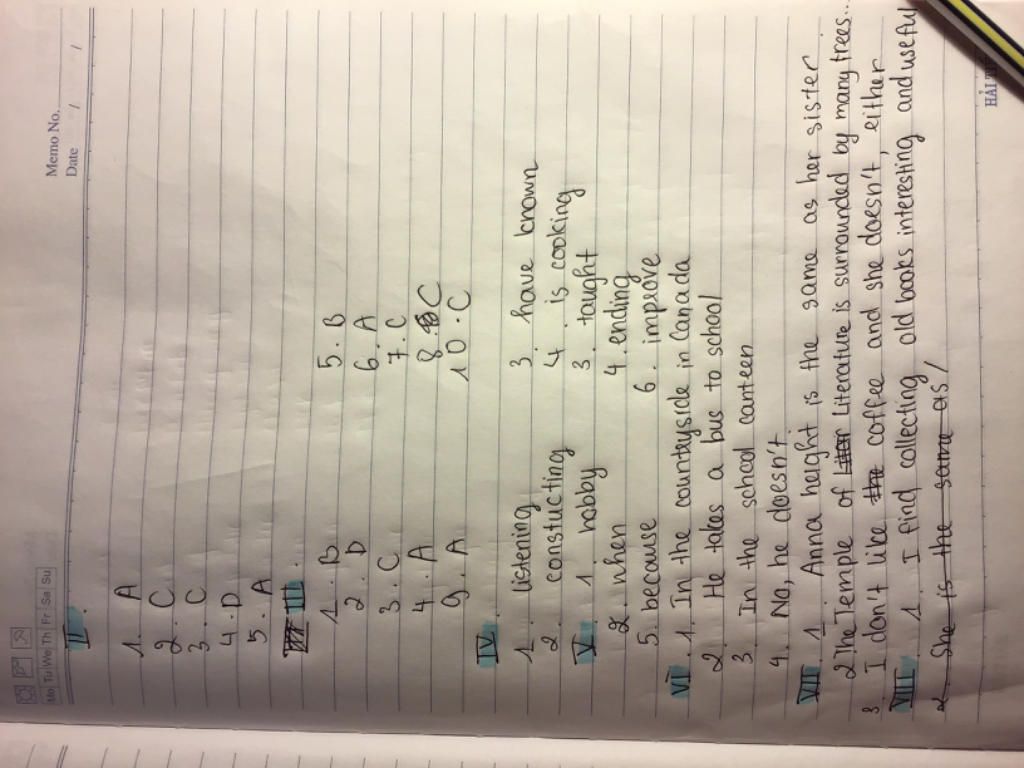 Memo No.
Date / /
Mo Tu We Th Fr Sa Su
II.
1. A
2. C
3. C
4. D
5. A
III.
1. B 5. B
2. D 6. A
3. C 7. C
4. A 8. C
9. A 10. C
IV
1. listening 3. have known
2. constucting 4. is cooking
V. 1. hobby 3. taught
2. when 4. ending
5. because 6. improve
VI. 1. In the countryside in Canada
2. He takes a bus to school
3. In the school canteen
4. No, he doesn't
VII 1. Anna height is the same as her sister
2 The Temple of Literature is surrounded by many trees...
3. I don't like coffee and she doesn't, either
VIII. 1. I find collecting old books interesting and useful
2. She is the same as /
HẢI